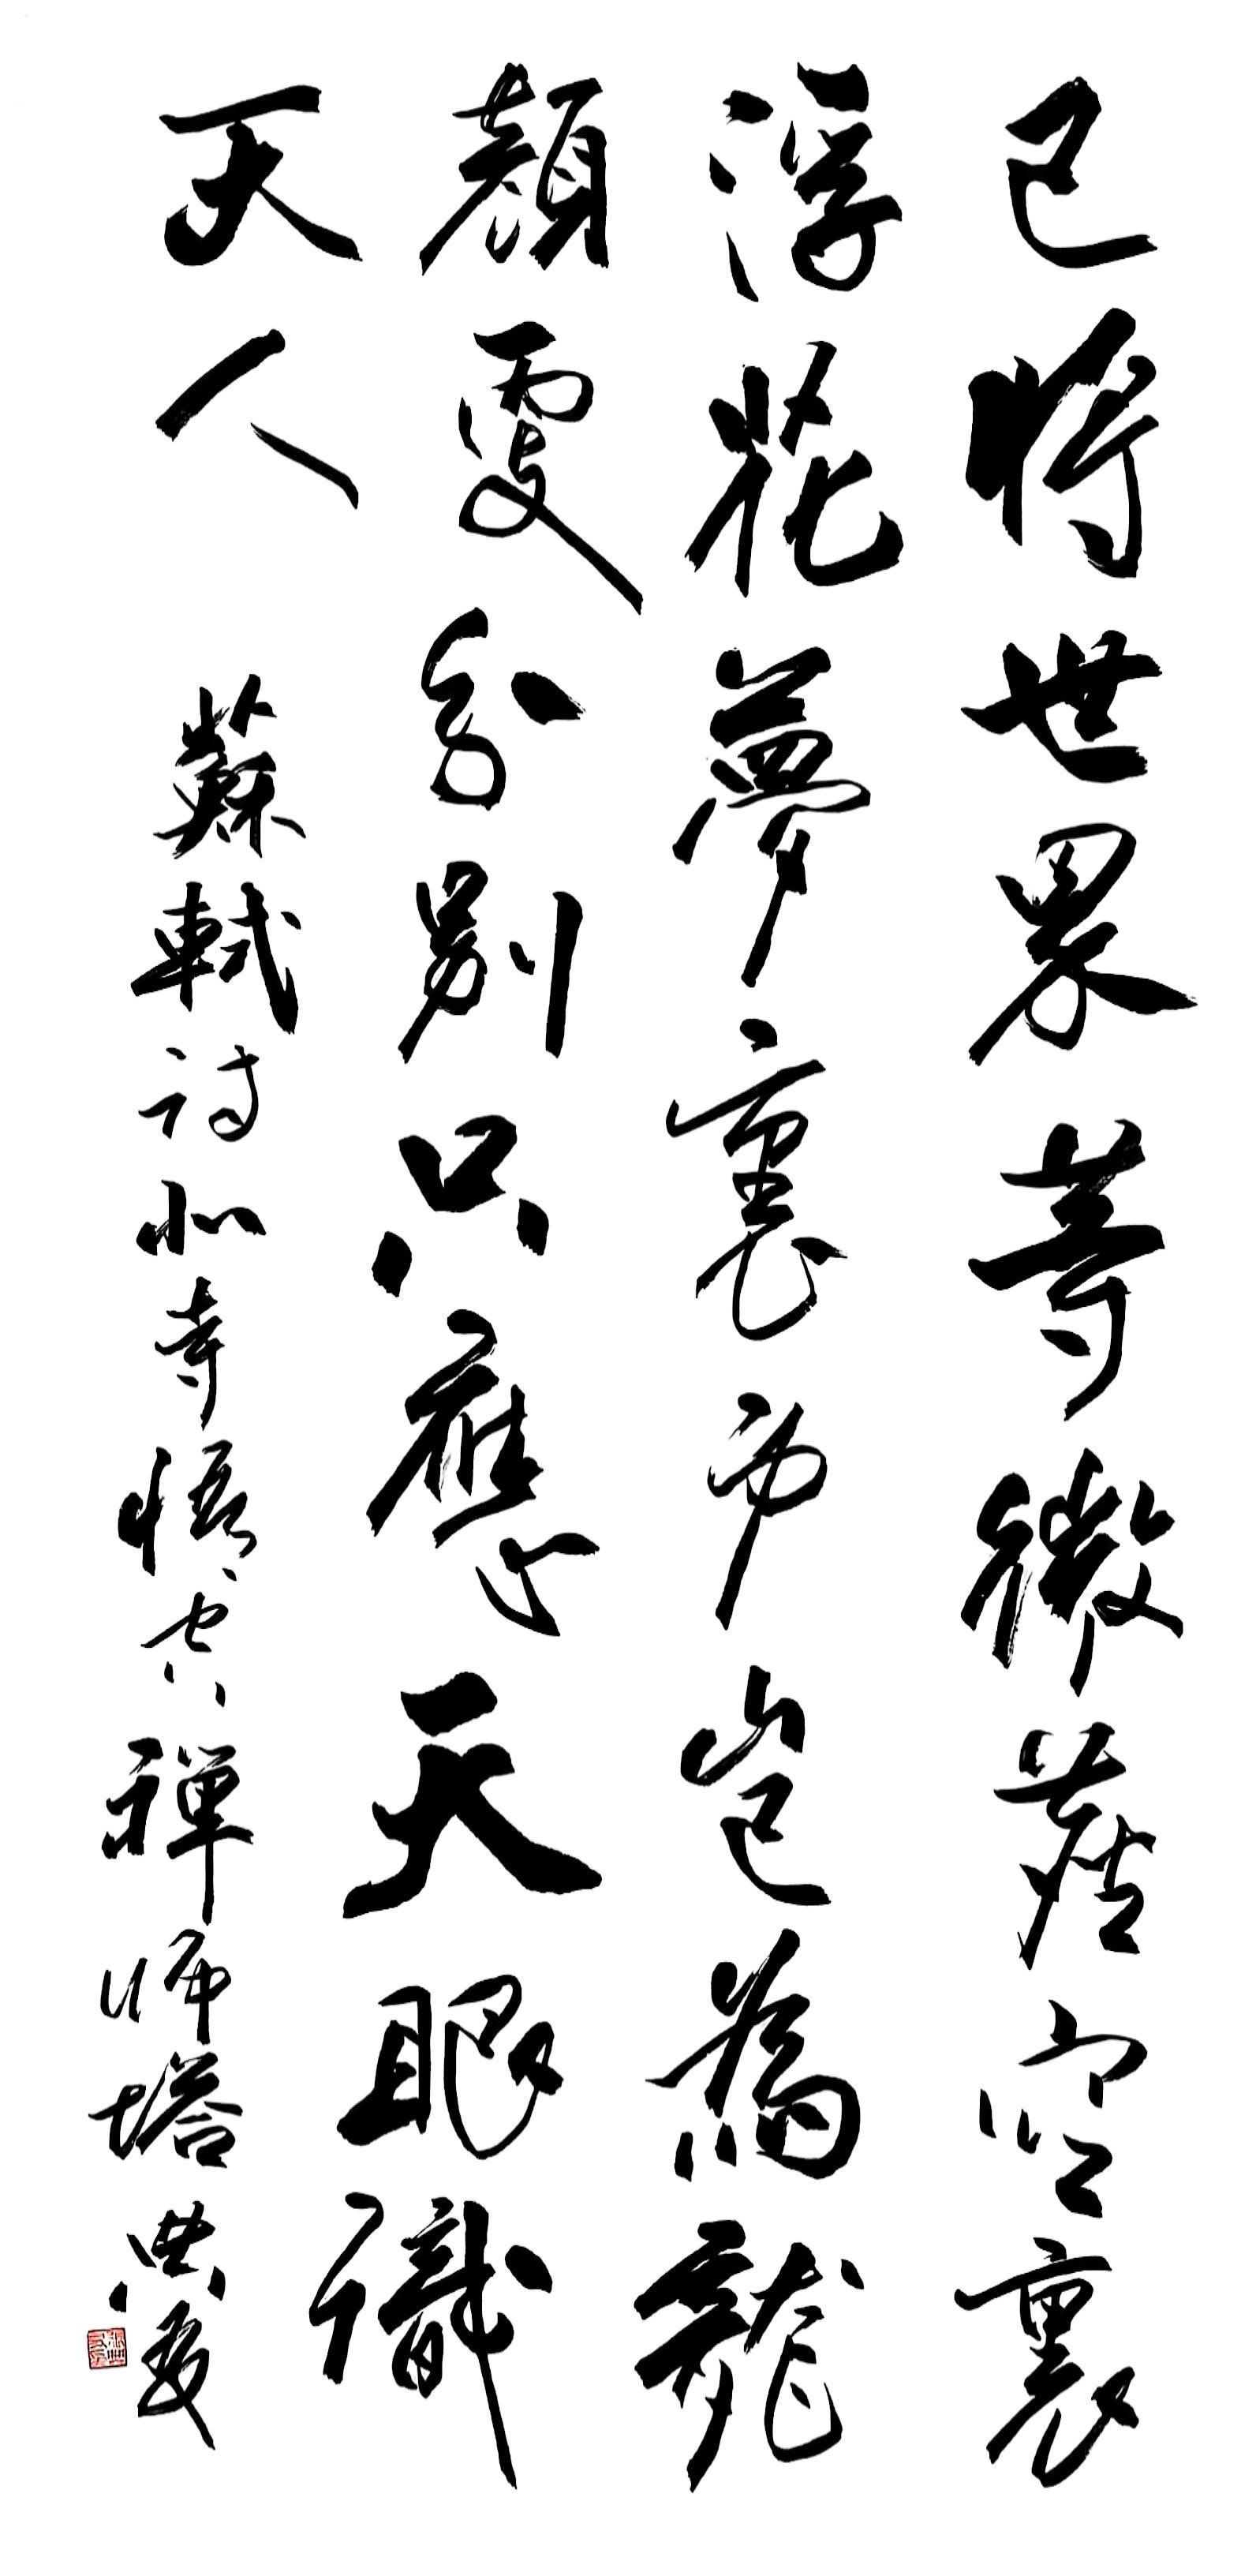 已將世界等微塵空裏
浮花夢裏身豈為龍
顏更分別只應天眼識
天人 蘇軾詩北寺悟空禪師塔 典